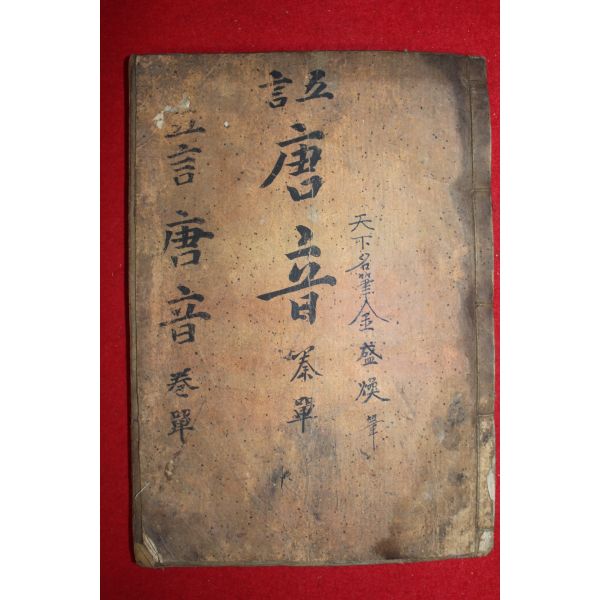 天下名筆金盛煥筆
五言
唐音單
五言唐音卷單